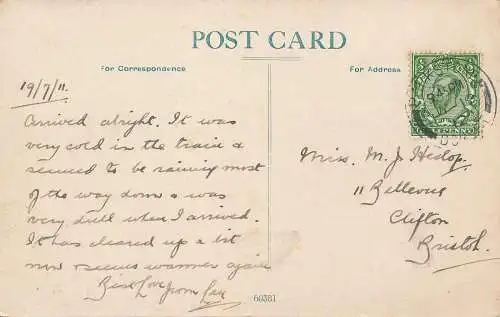 POST CARD
For Correspondence
For Address
19/7/11.
Arrived alright. It was
very cold in the train &
seemed to be raining most
of the way down & was
very dull when I arrived.
It has cleared up a bit
now & seems warmer again
Best Love from
Miss. M. J. Heslop.
11 Bellevue
Clifton
Bristol.
60381